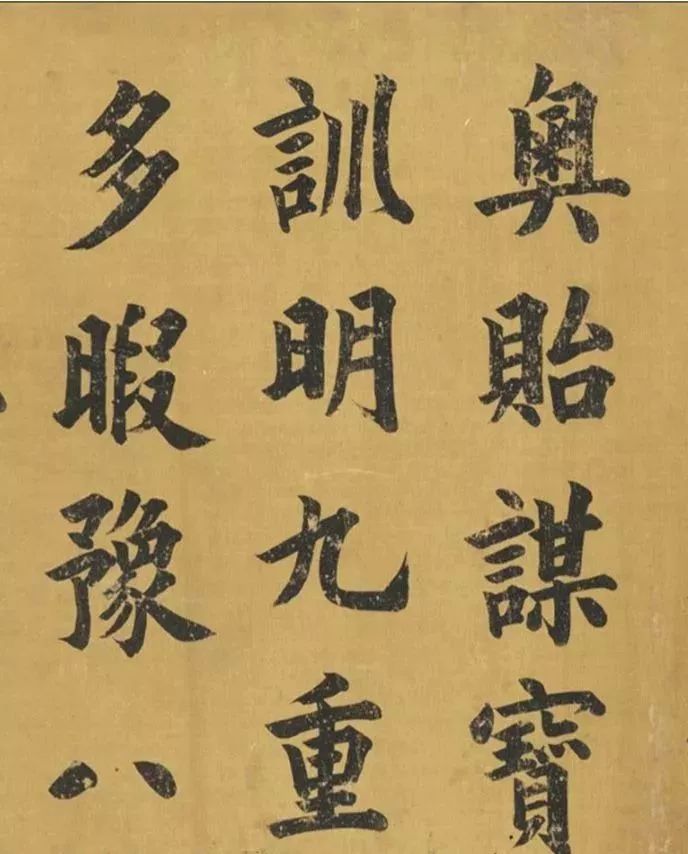 奧貽謀寶
訓明九重
多暇豫八